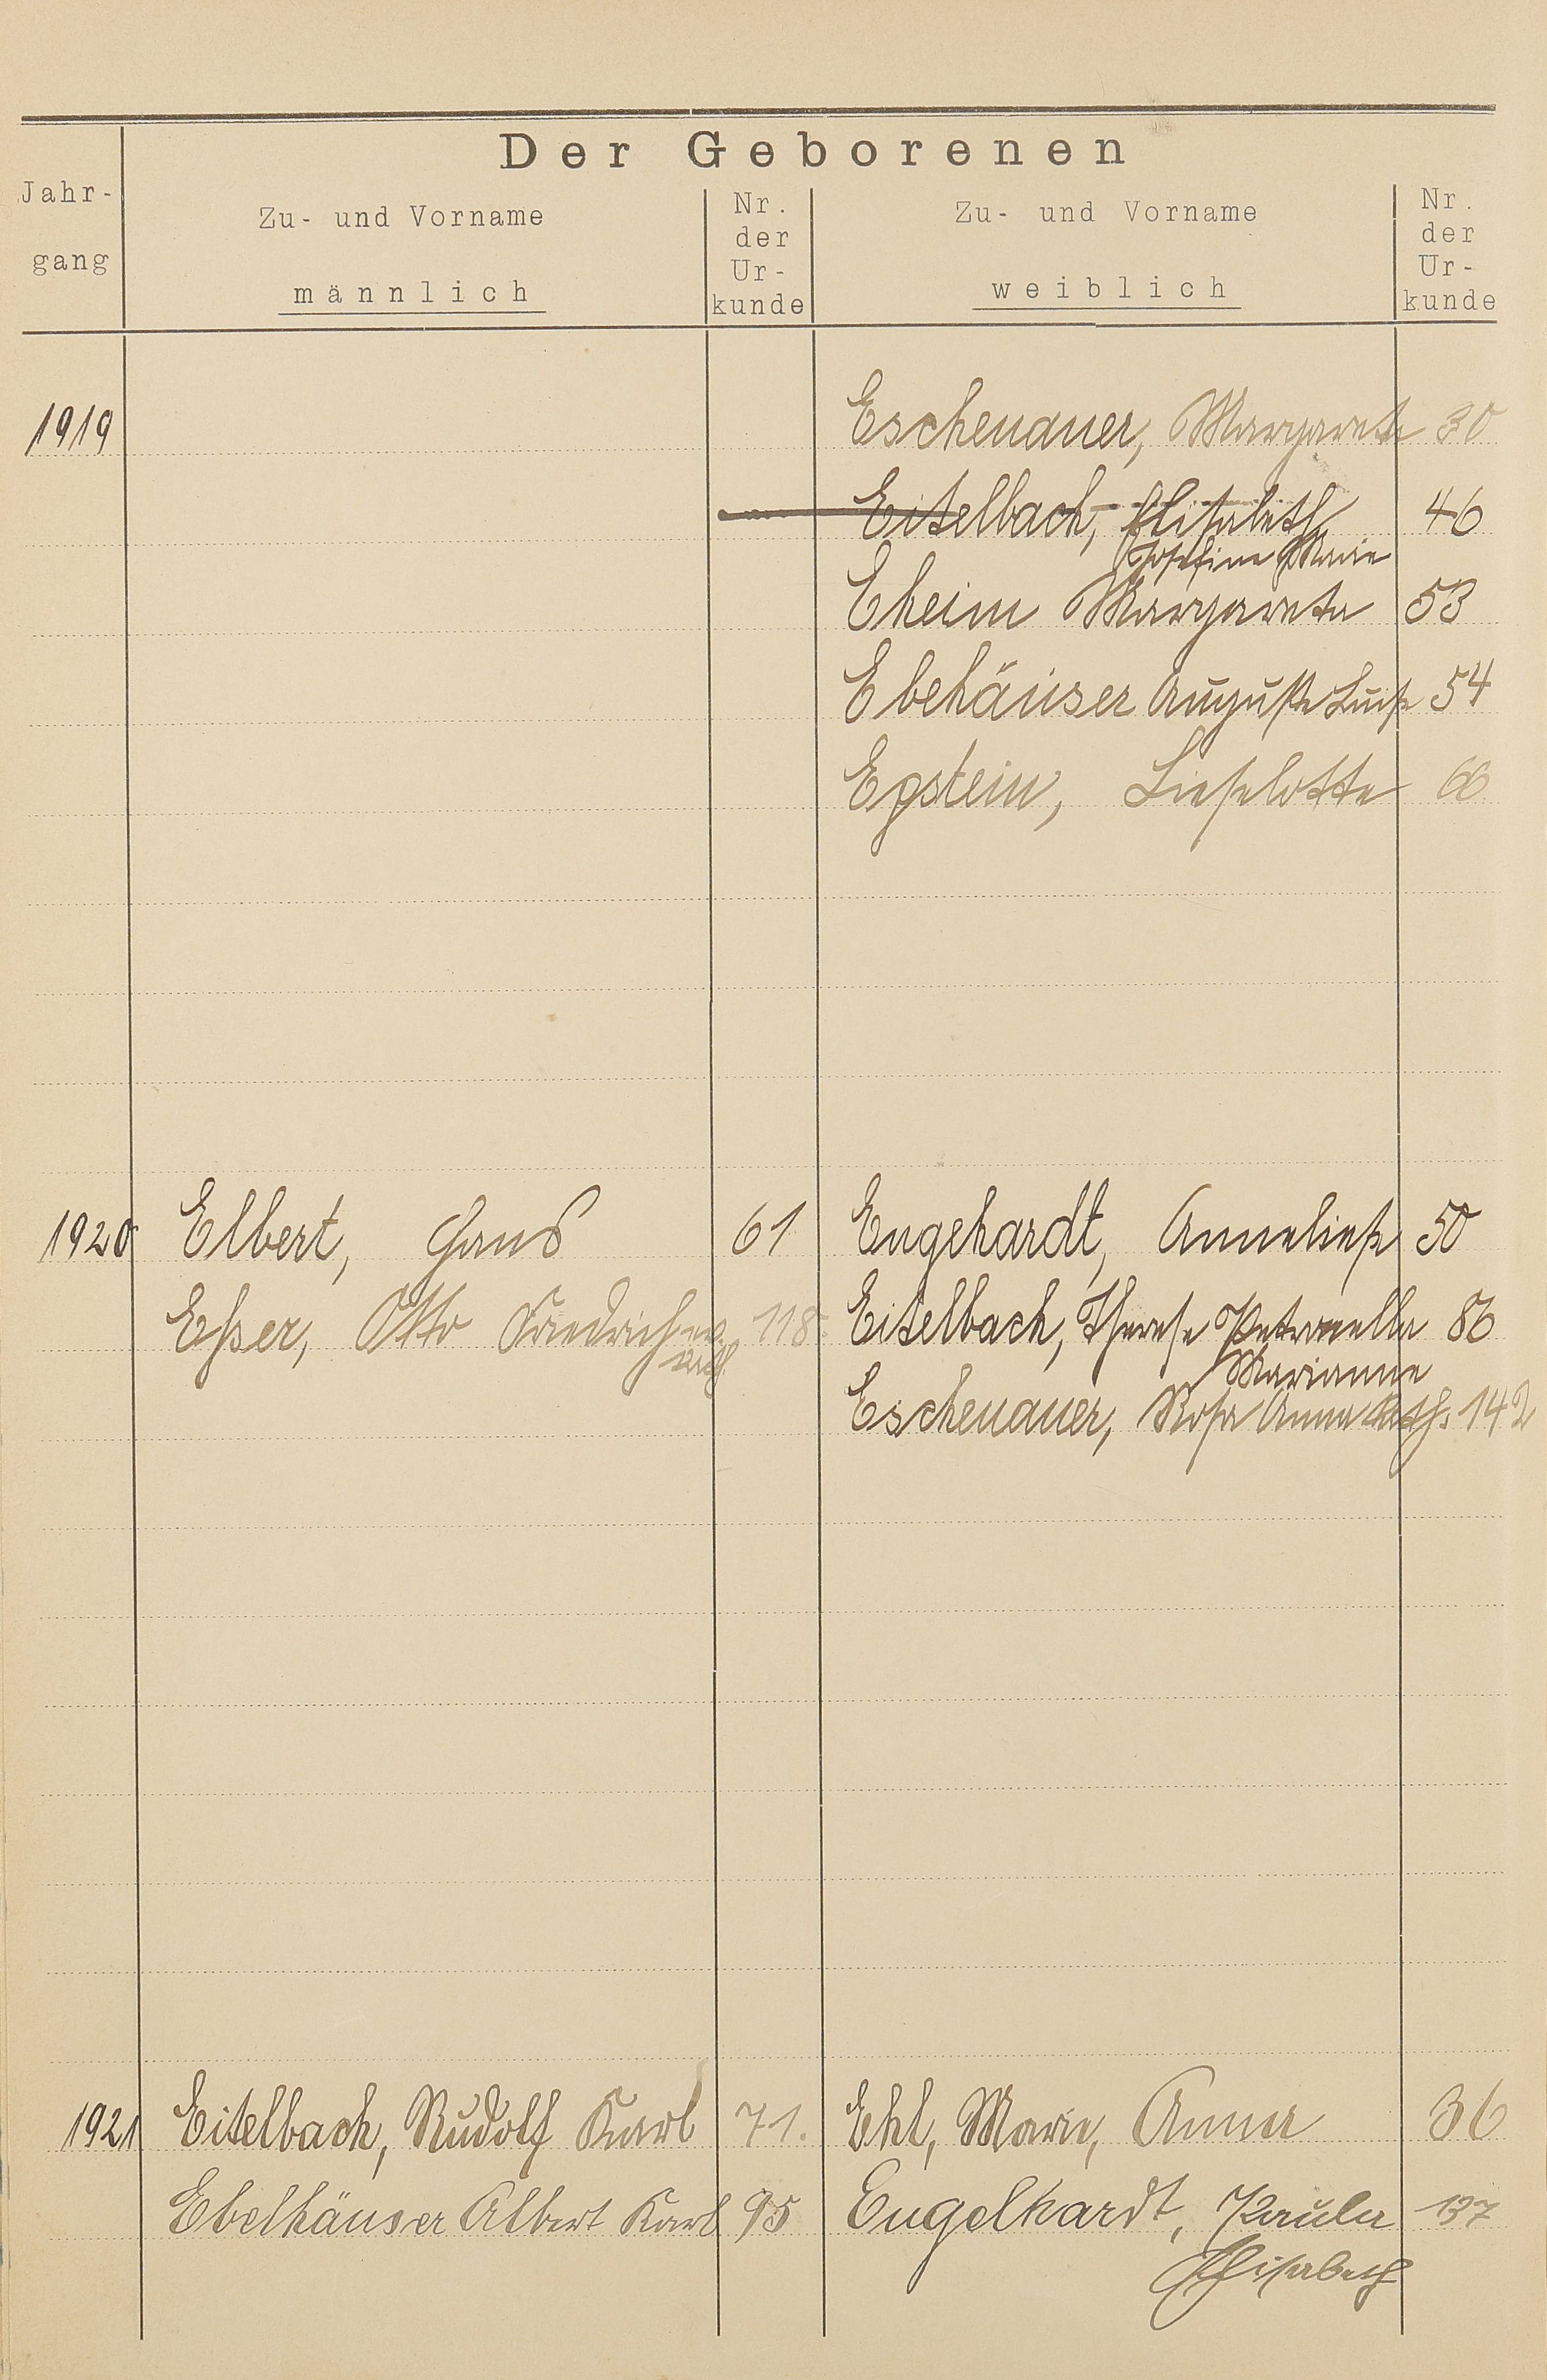 Der Geborenen
Jahr-
gang
Zu- und Vorname
männlich
Nr.
der
Ur-
kunde
Zu- und Vorname
weiblich
Nr.
der
Ur-
kunde
1919 Eschenauer, Margarete 30
Eitelbach, Elisabeth 46
Josefine Marie
Eheim Margareta 53
Ebehäuser Auguste Luise 54
Epstein, Lieselotte 66
1920 Elbert, Hans 61 Engehardt, Anneliese 50
Esser, Otto Friedrich 118 Eitelbach, Therese Petronella 86
Marianne
Eschenauer, Rosa Anna Kath. 142
1921 Eitelbach, Rudolf Karl 71. Ehl, Marie, Anna 36
Ebelhäuser Albert Karl 95 Engelhardt, Paula 137
Elisabeth